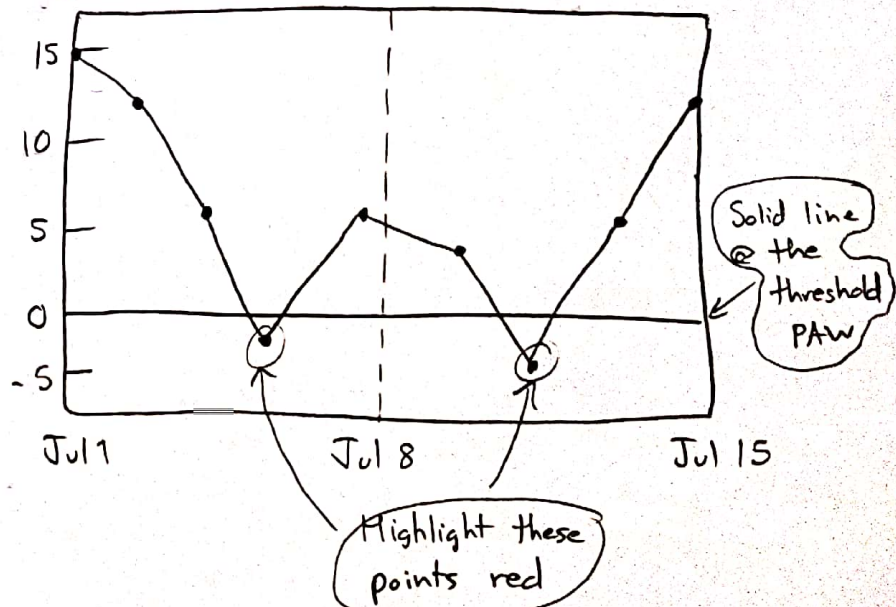 15
10
5
0
-5
Jul 1
Jul 8
Jul 15
Solid line
@ the
threshold
PAW
Highlight these
points red